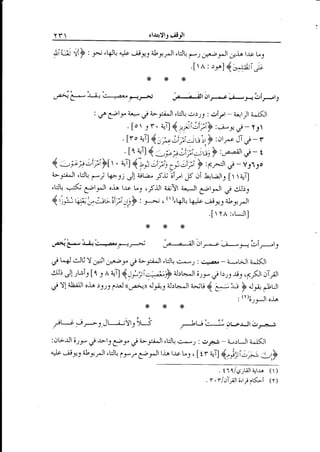 الوقف والابتداء ٢٣١
وما عدا هذه المواضع رسم بالتاء المربوطة ويوقف عليه بالهاء، نحو :
[هود : ١٨].
* * *
وامرأت يوسف عمران القصص تحريم معصيت بقد سمع يخص
الكلمة الرابعة - امرأت : وردت بالتاء المفتوحة في سبعة مواضع هي :
١ و٢ - في يوسف : ﴿ امرأت العزيز ﴾ [آية ٣٠ و ٥١].
٣ - في آل عمران : ﴿ إذ قالت امرأت عمران ﴾ [آية ٣٥].
٤ - في القصص : ﴿ وقالت امرأت فرعون ﴾ [آية ٩].
٥ و٦ و٧ - في التحريم : ﴿ امرأت نوح وامرأت لوط ﴾ [آية ١٠] ﴿ امرأت فرعون ﴾
[آية ١١] والضابط أن كل امرأة تذكر مقرونة بزوجها رسمت بالتاء المفتوحة
وذلك في المواضع السبعة السالفة الذكر، وما عدا هذه المواضع رسمت بالتاء
المربوطة ويوقف عليها بالهاء (١)، نحو : ﴿ وإن امرأة خافت من بعلها ﴾
[النساء : ١٢٨].
* * *
وامرأت يوسف عمران القصص تحريم معصيت بقد سمع يخص
الكلمة الخامسة - معصيت : رسمت بالتاء المفتوحة في موضعين لا ثالث لهما في
القرآن الكريم، وقد وردا في سورة المجادلة ﴿ ومعصيت الرسول ﴾ [آية ٨ و ٩] وأشار إلى ذلك
الناظم بقوله ﴿ قد سمع ﴾ قاصدا سورة المجادلة وبقوله «يخص» لعدم ورود هذه اللفظة إلا في
هذه السورة (٢) :
* * *
شجرت الدخان سنت فاطر كلا والانفال وحرف غافر
الكلمة السادسة - شجرت : رسمت بالتاء المفتوحة في موضع واحد في سورة الدخان :
﴿ إن شجرت الزقوم ﴾ [آية ٤٣]، وما عدا هذا الموضع مرسوم بالتاء المربوطة ويوقف عليه
(١) هداية القاري/٤٦٩ .
(٢) أحكام قراءة القرآن/٣٠٣ .